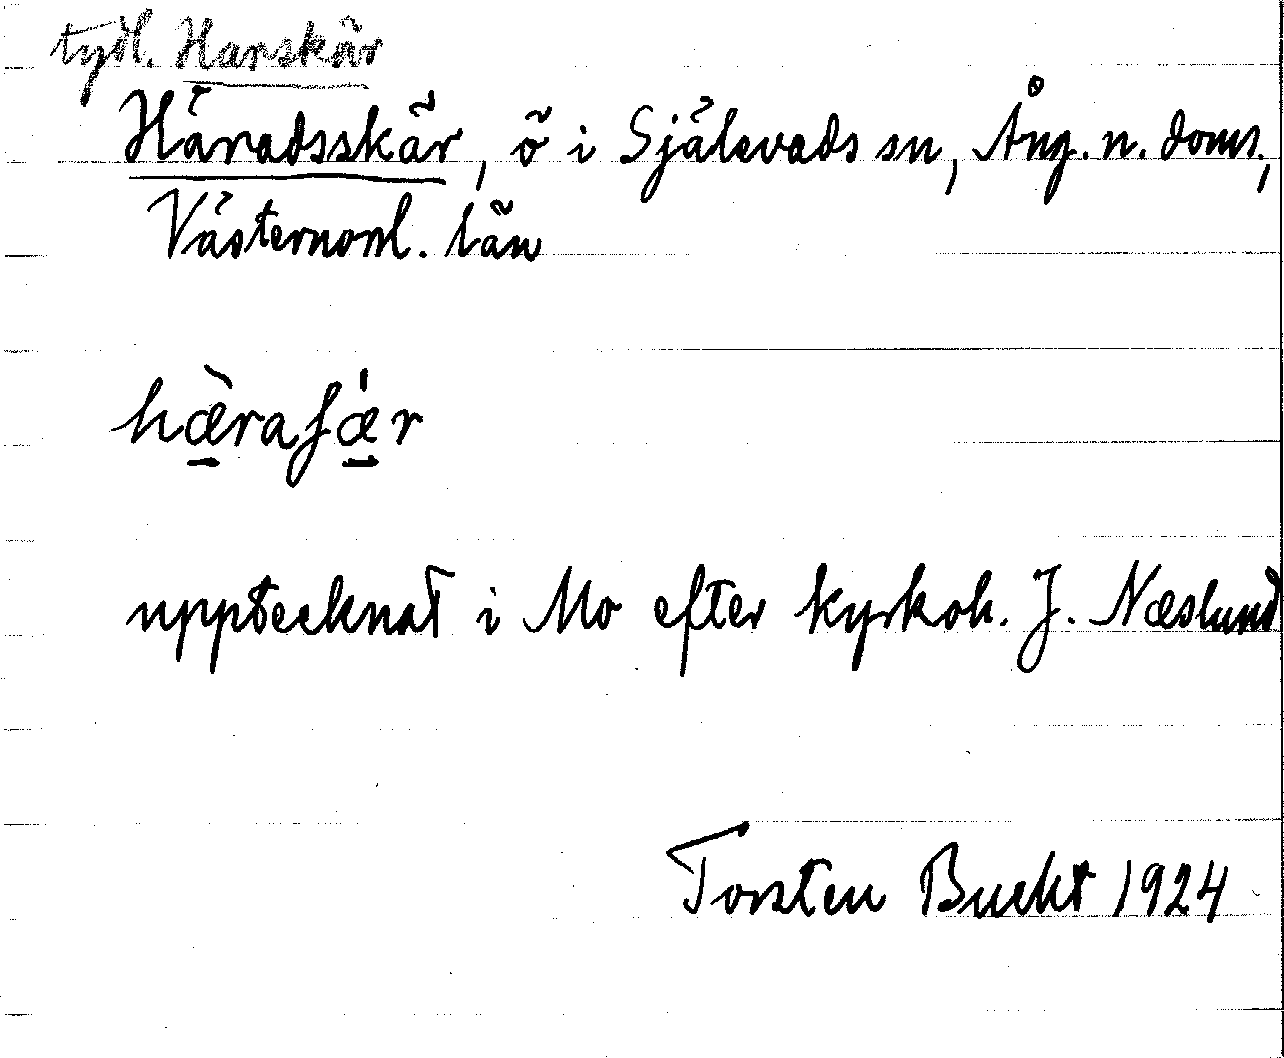 tydl. Harskär
Häradsskär, ö i Själevads sn, Ång. n. doms.,
Västernorrl. län
hæ̀raʃæ̍r
upptecknat i Mo efter kyrkoh. J. Næslund
Torsten Bucht 1924